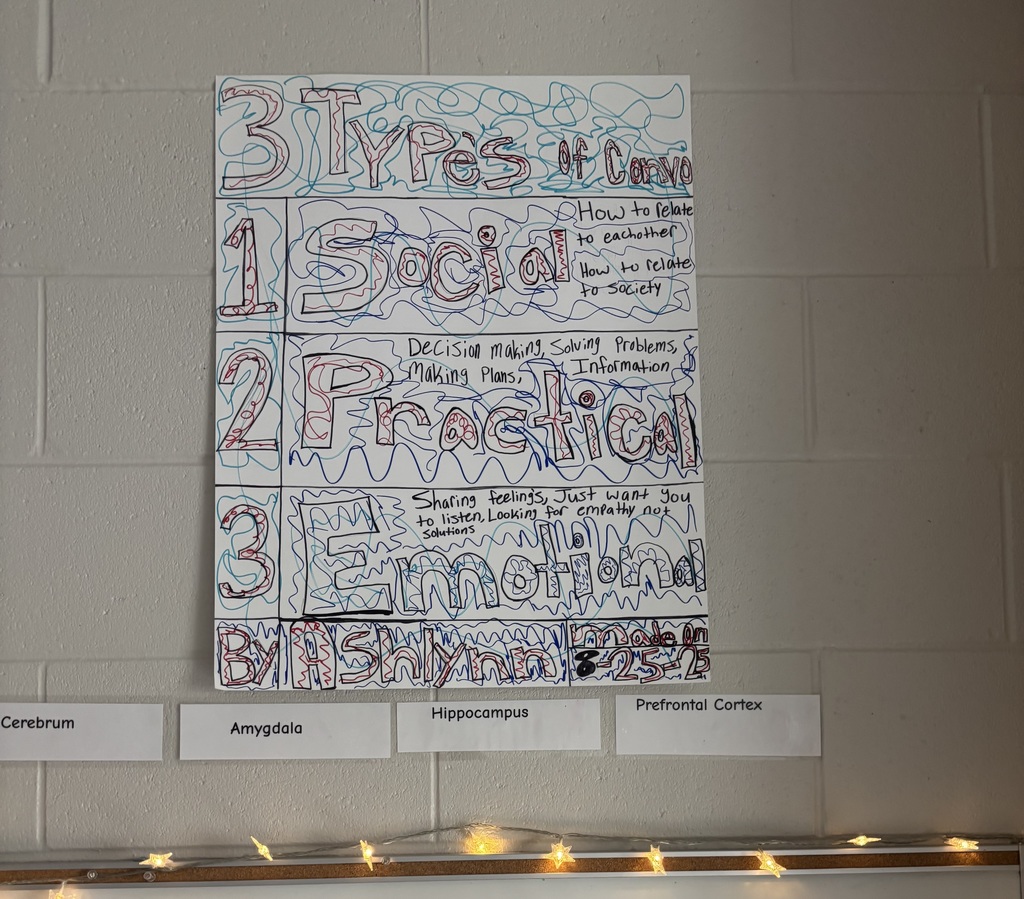 3 Types of Convo
1 Social
How to relate
to eachother
How to relate
to society
2 Practical
Decision making, Solving Problems,
Making Plans, Information
3 Emotional
Sharing feeling's, Just want you
to listen, Looking for empathy not
solutions
By Ashlynn
made on
8-25-25
Cerebrum
Amygdala
Hippocampus
Prefrontal Cortex